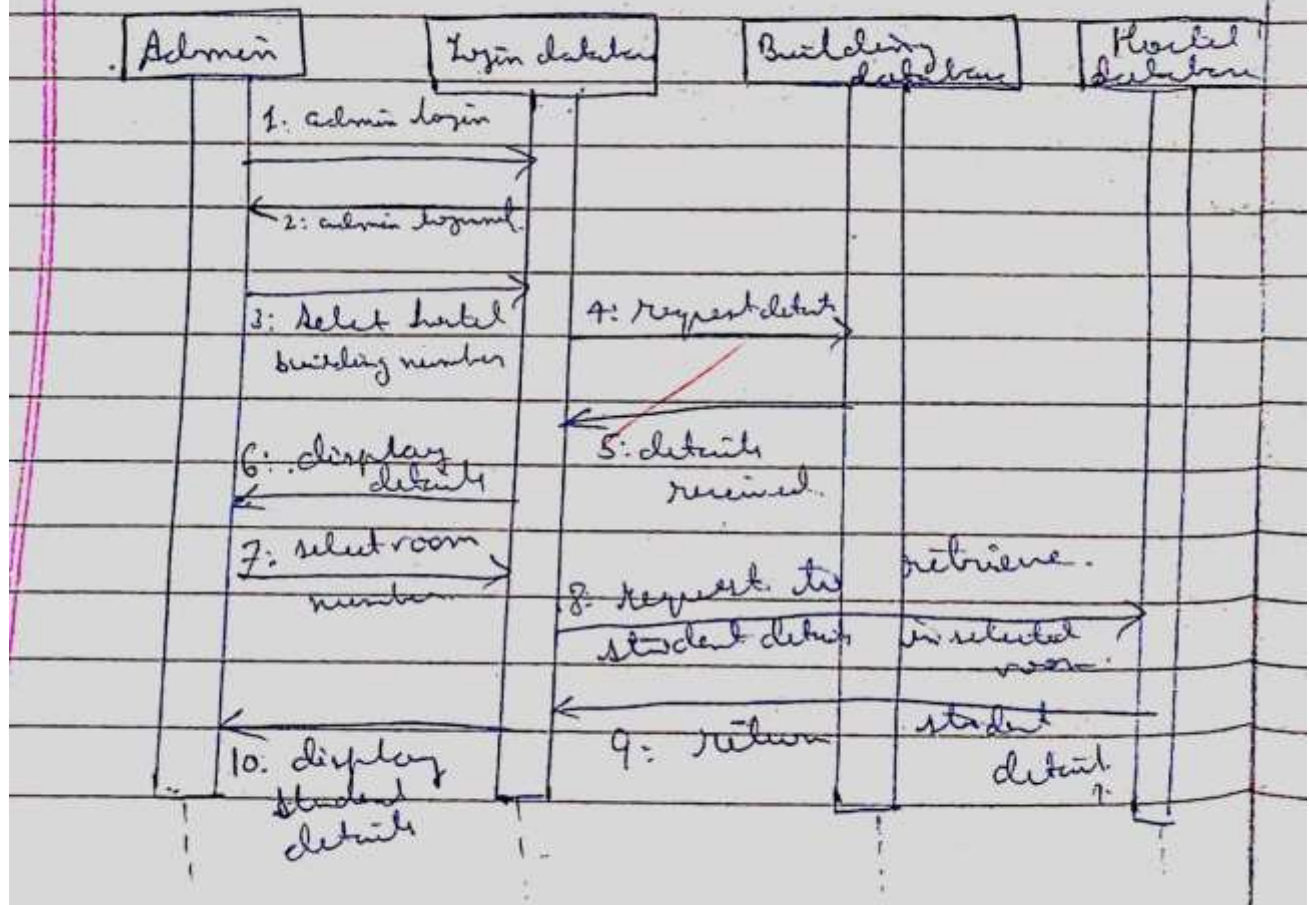 Admin
Login database
Building
database
Hostel
database
1: admin login
2: admin
3: select hostel
building number
4: request details
5: details
received.
6: display
details
7: select room
number
8: request to retrieve.
student details in selected
room.
9: return student
details
10. display
student
details